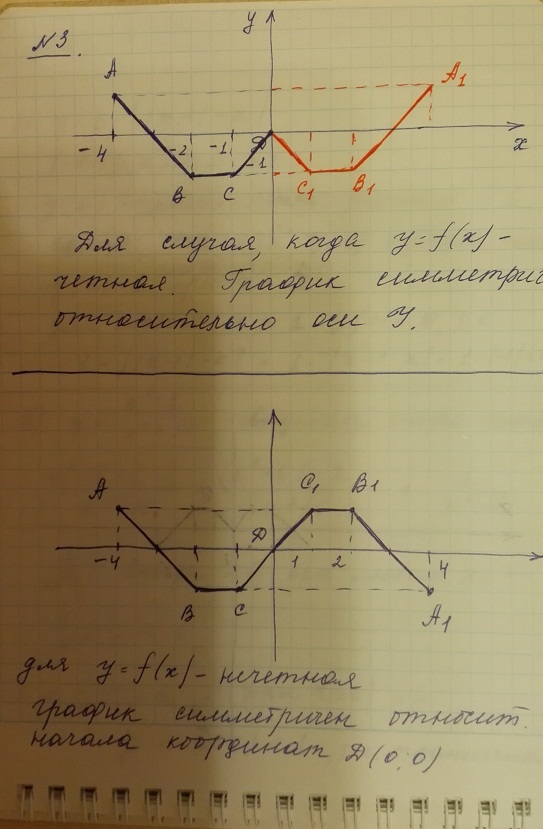 N3.
y
A
A1
-4
-2
-1
D
-1
x
B
C
C1
B1
Для случая, когда y=f(x)-
четная. График симметрич
относительно оси У.
A
C1
B1
D
-4
1
2
4
B
C
A1
для y=f(x)-нечетная
график симметричен относит.
начала координат D(0;0)